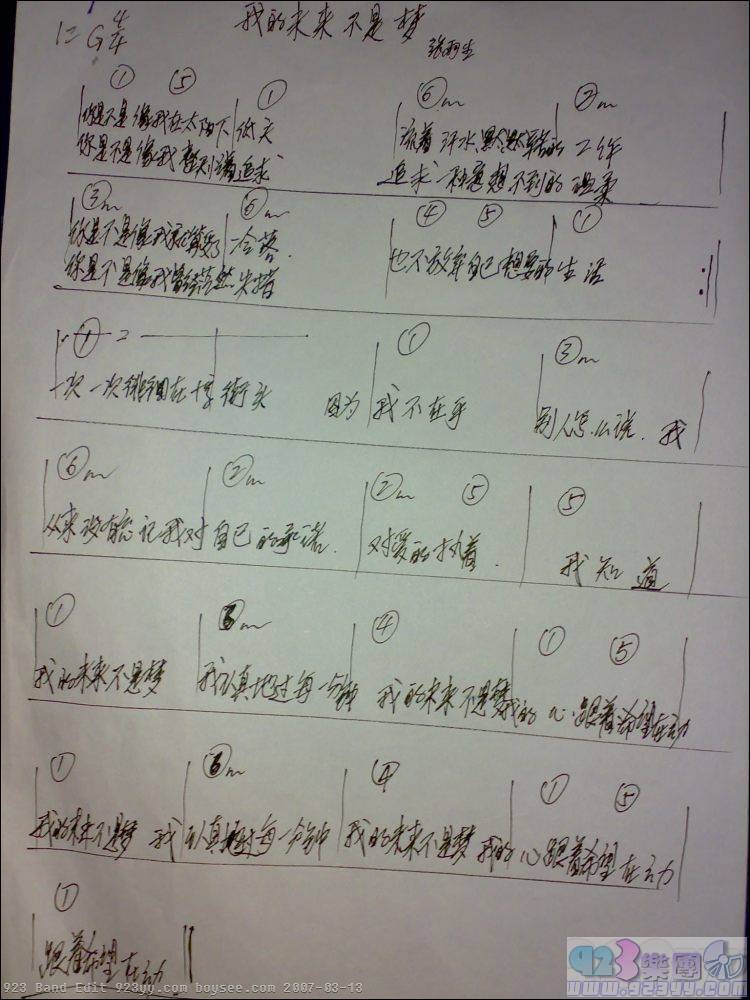 我的未来不是梦
1=G 4/4
张雨生
① ⑤ ① ⑥m ②m
你是不是像我在太阳下低头 流着汗水默默辛苦的工作
你是不是像我整天追求 追求一种意想不到的温柔
③m ⑥m ④ ⑤ ①
你是不是像我就算受了冷落 也不放弃自己想要的生活
你是不是像我曾经茫然失措
① ① ③m
一次一次徘徊在十字街头 因为我不在乎 别人怎么说.我
⑥m ②m ②m ⑤ ⑤
从来没有忘记我对自己的承诺. 对爱的执着. 我知道
① ③m ④ ① ⑤
我的未来不是梦 我认真地过每一分钟 我的未来不是梦我的心跟着希望在动
① ③m ④ ① ⑤
我的未来不是梦 我认真地过每一分钟 我的未来不是梦 我的心跟着希望在动
①
跟着希望在动
923樂團
www.923yy.com
923 Band Edit 923yy.com boysee.com 2007-03-13